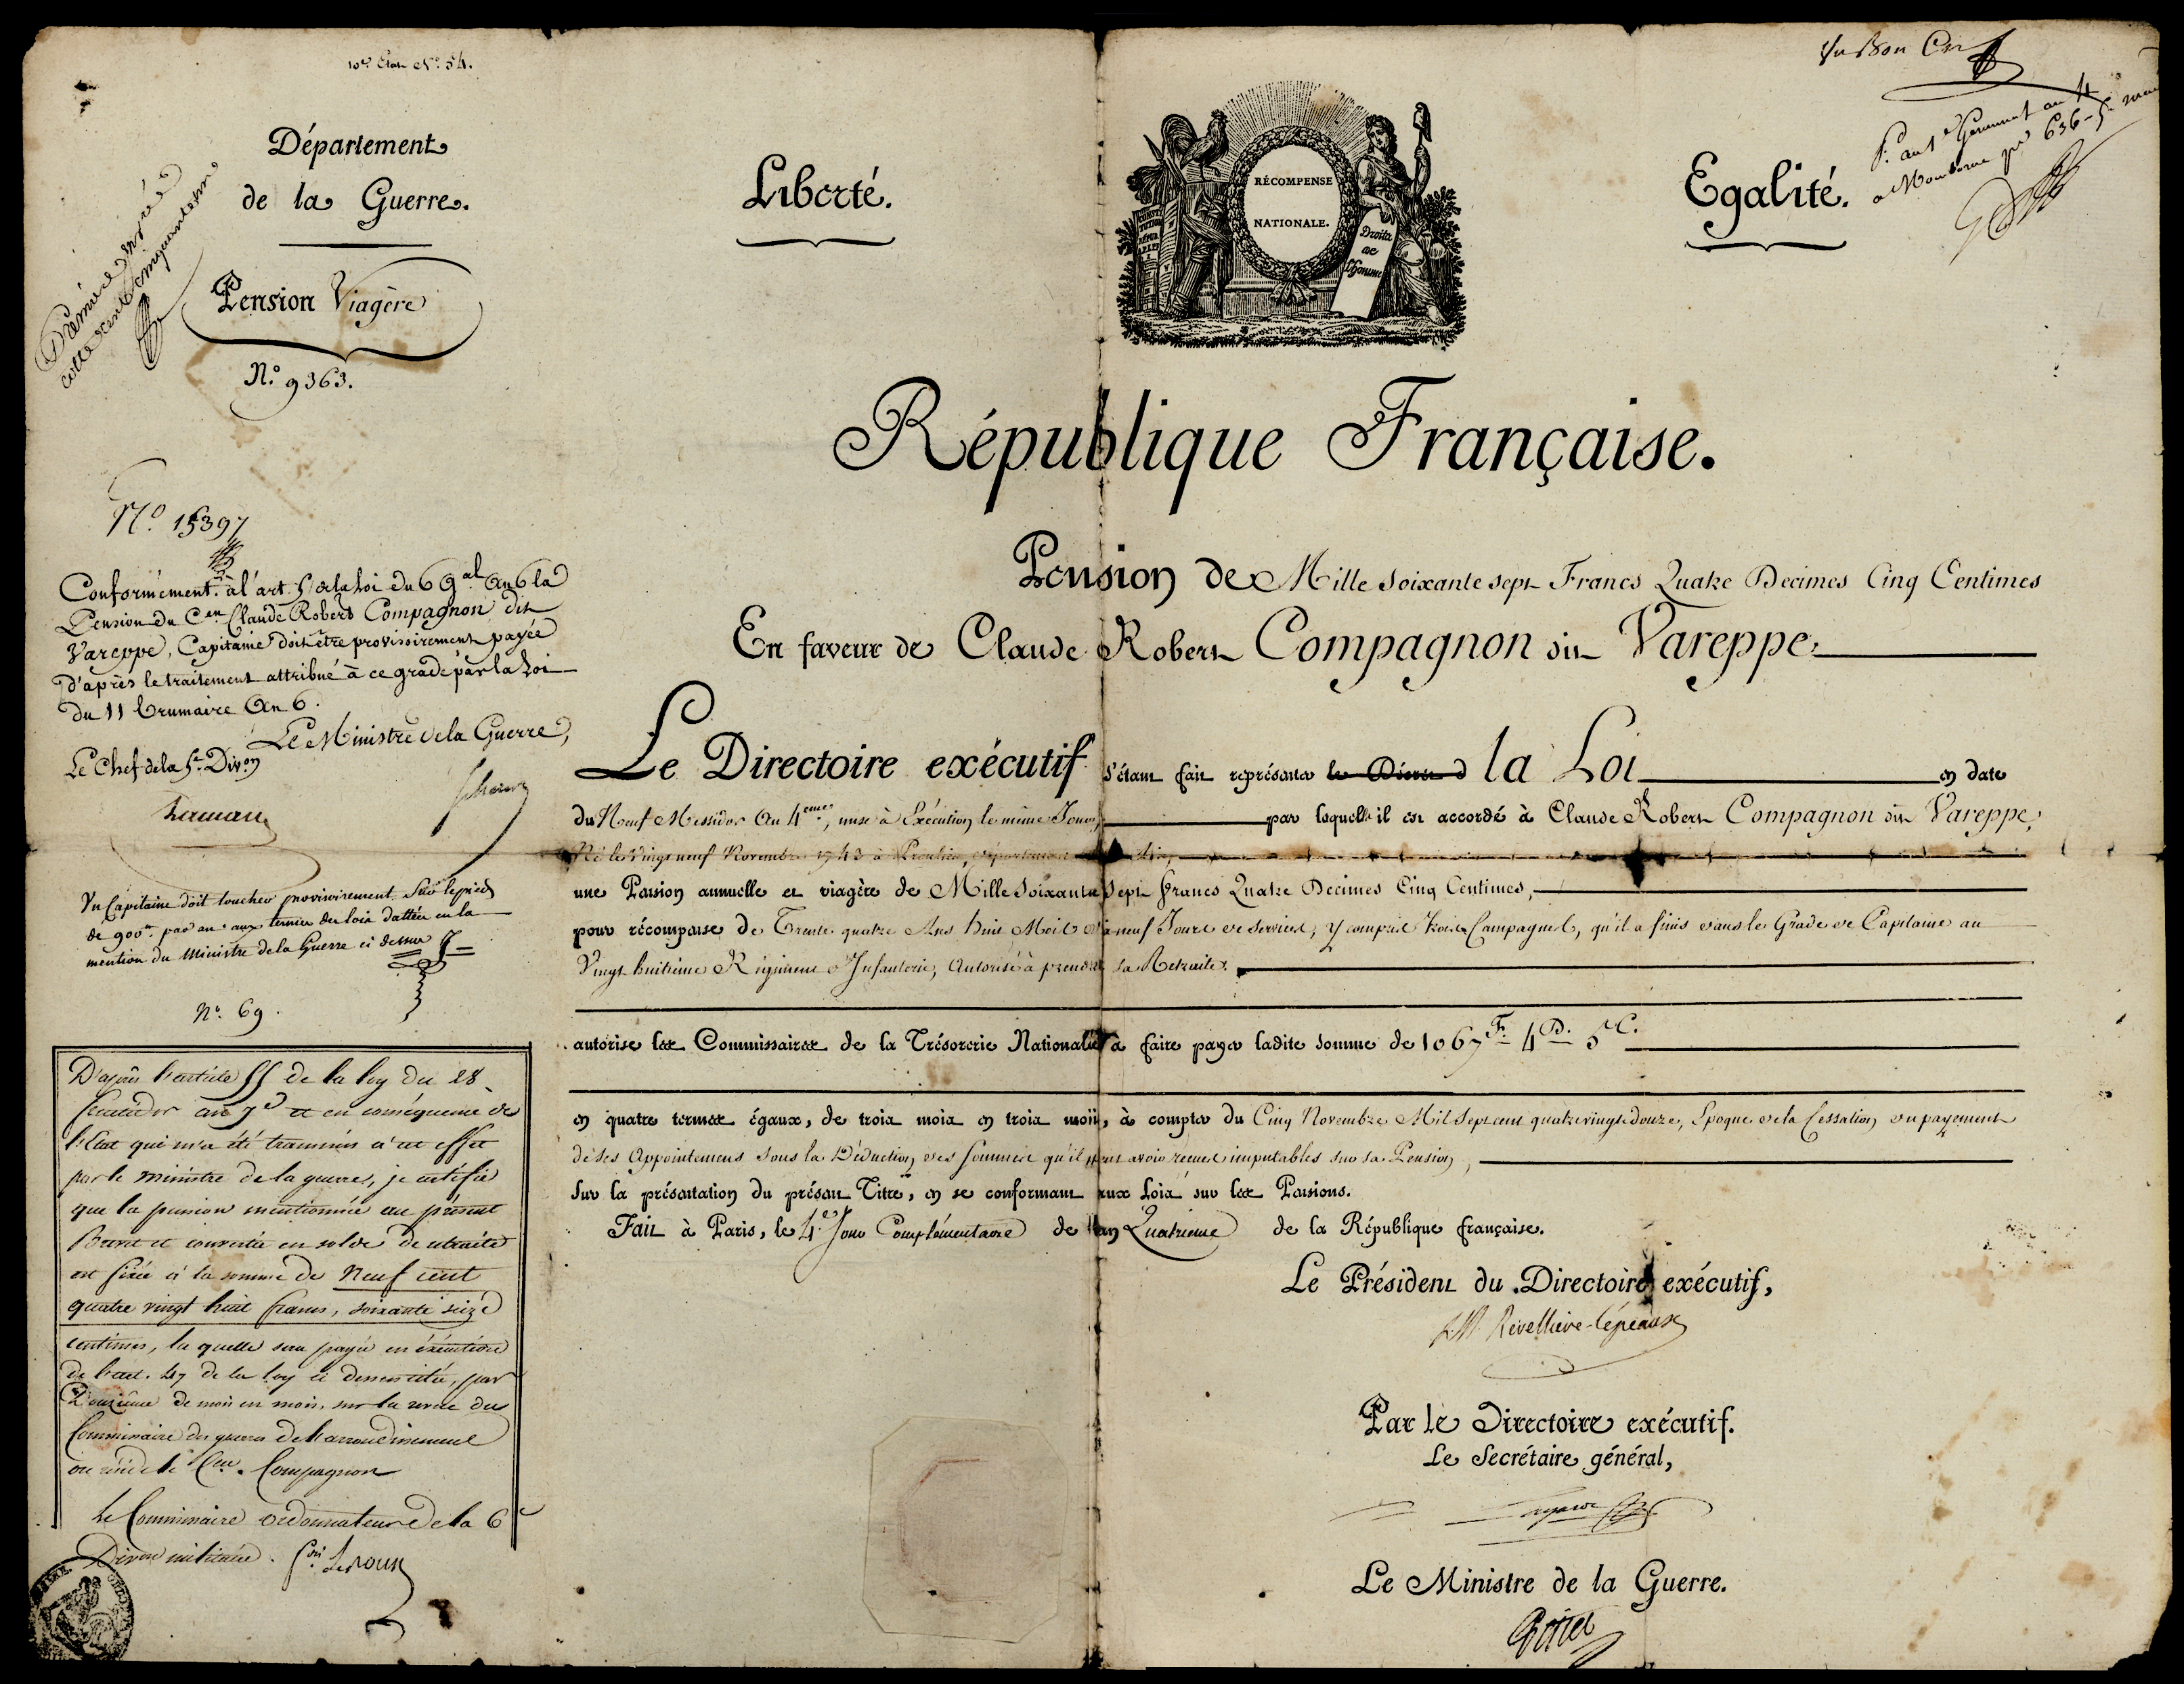 10.e Etat N.o 54.
Département
de la Guerre.
Pension Viagère
N.o 9363.
Liberté.
RÉCOMPENSE
NATIONALE.
Droits
de
l'homme
Egalité.
Vu Bon
République Française.
N.o 15397
Conformément à l'art 5 de la Loi du 6 G.al An 6 la
Pension du C.en Claude Robert Compagnon dit
Vareppe, Capitaine doit être provisoirement payée
d'après le traitement attribué à ce grade par la Loi
du 11 brumaire An 6.
Le Ministre de la Guerre,
Le Chef de la 5.e Div.on
Vu Capitaine doit toucher provisoirement sur le pied
de 900.tt par an aux termes des loix dattées en la
mention du Ministre de la Guerre ci dessus
N.o 69.
D'après l'article 55 de la loy du 28
fructidor an 7.e et en conséquence de
l'Etat qui m'a été transmis à cet effet
par le ministre de la guerre, je certifie
que la pension mentionnée au présent
Brevet et convertie en solde de retraite
est fixée à la somme de Neuf cent
quatre vingt huit francs, soixante seize
centimes, la quelle sera payée en éxécution
de l'art. 47 de la loy ci dessus citée, par
Douzième de mois en mois, sur la revue du
Commissaire des guerres de l'arrondissement
où réside le C.en Compagnon
Le Commissaire ordonnateur de la 6.e
Div.on militaire.
Pension de Mille Soixante sept Francs Quatre Decimes Cinq Centimes
En faveur de Claude Robert Compagnon dit Vareppe.
Le Directoire exécutif s'étant fait représenter le Décret d la Loi en date
du Neuf Messidor An 4.eme, mise à Exécution le même Jour, par laquelle il est accordé à Claude Robert Compagnon dit Vareppe,
Né le Vingt neuf Novembre 1743 à département
une Pension annuelle et viagère de Mille Soixante Sept francs Quatre Decimes Cinq Centimes,
pour récompense de Trente quatre Ans huit Mois neuf Jours de Services, y compris trois Campagnes, qu'il a finis dans le Grade de Capitaine au
Vingt huitieme Régiment d'Infanterie, Autorisé à prendre sa Retraite.
autorise les Commissaires de la Trésorerie Nationale à faire payer ladite somme de 1067.F 4.D. 5.C.
en quatre termes égaux, de trois mois en trois mois, à compter du Cinq Novembre Mil Sept cent quatre vingt douze, Epoque de la Cessation du payement
de ses Appointemens sous la Déduction des Sommes qu'il peut avoir reçues imputables sur sa Pension,
sur la présentation du présent Titre, en se conformant aux Loix sur les Pensions.
Fait à Paris, le 4.e Jour Complémentaire de l'an Quatrieme de la République française.
Le Président du Directoire exécutif,
L.M. Revelliere-Lépeaux
Par le Directoire exécutif.
Le Secrétaire général,
Lagarde
Le Ministre de la Guerre.
Petiet